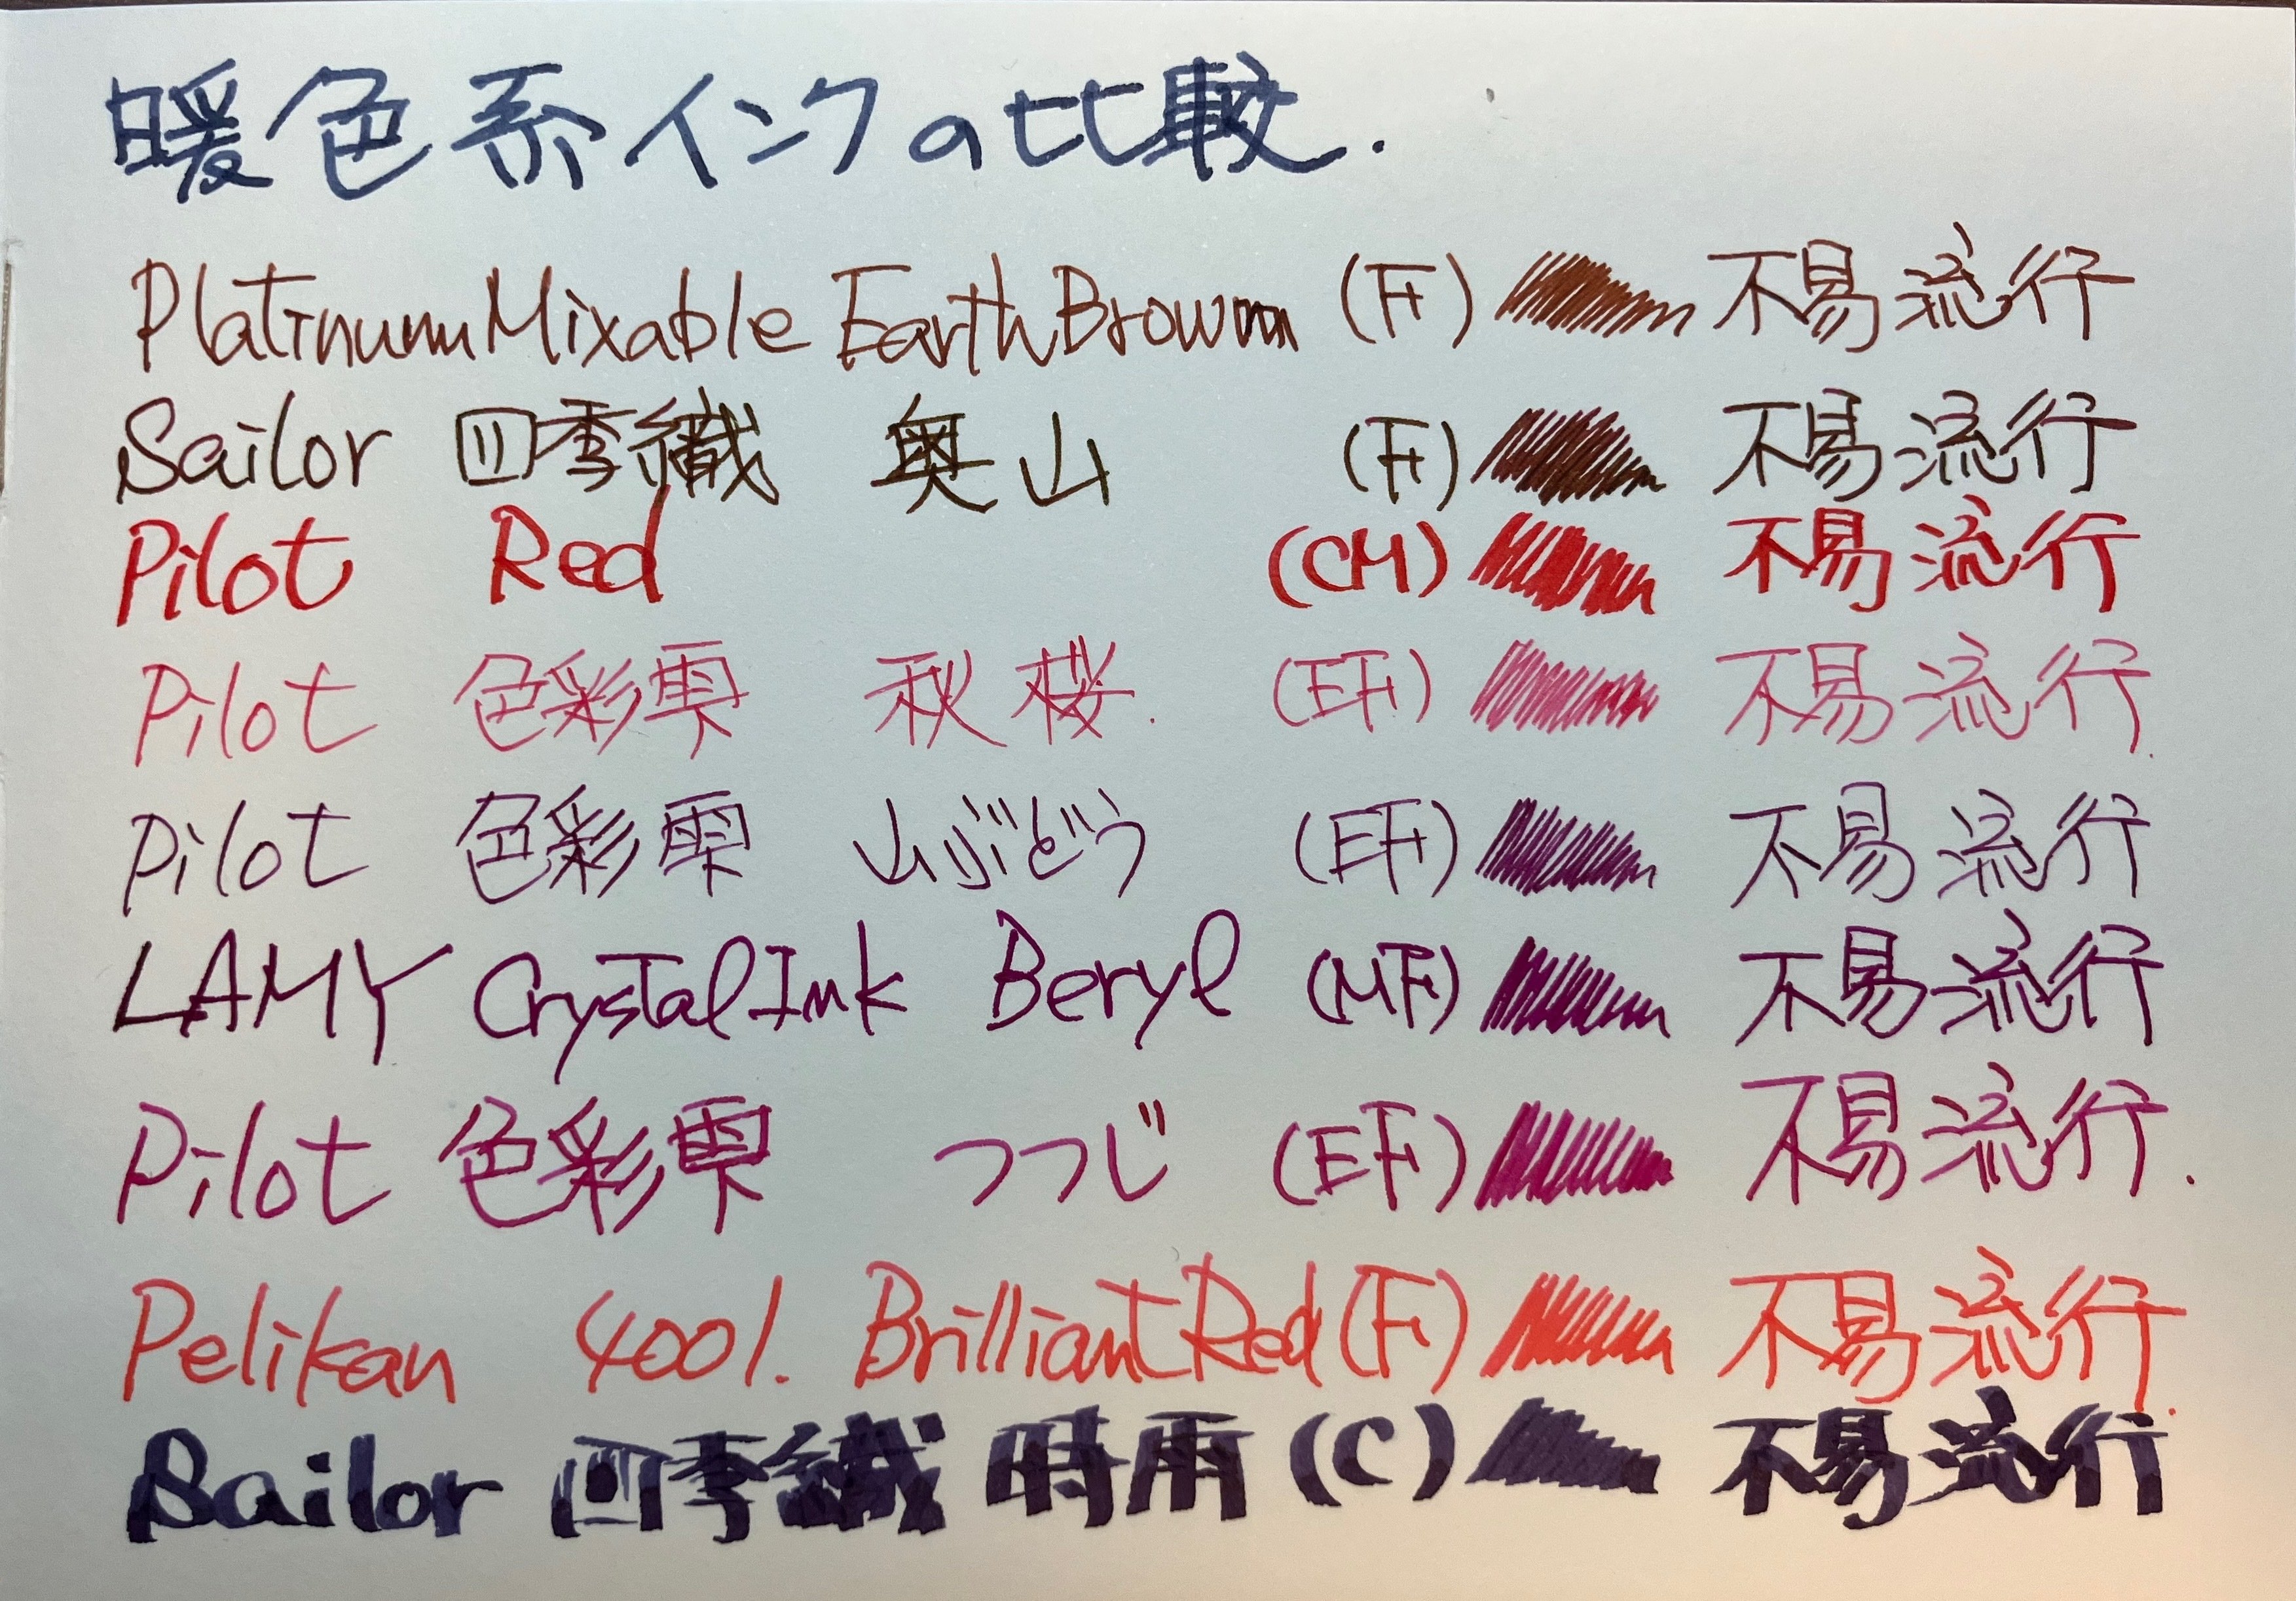 暖色系インクの比較.
Platinum Mixable Earth Brown (F) 不易流行
Sailor 四季織 奥山 (F) 不易流行
Pilot Red (CM) 不易流行
Pilot 色彩雫 秋桜. (EF) 不易流行.
Pilot 色彩雫 山ぶどう (EF) 不易流行
LAMY Crystal Ink Beryl (MF) 不易流行
Pilot 色彩雫 つつじ (EF) 不易流行.
Pelikan 4001. Brilliant Red (F) 不易流行.
Sailor 四季織 時雨 (C) 不易流行